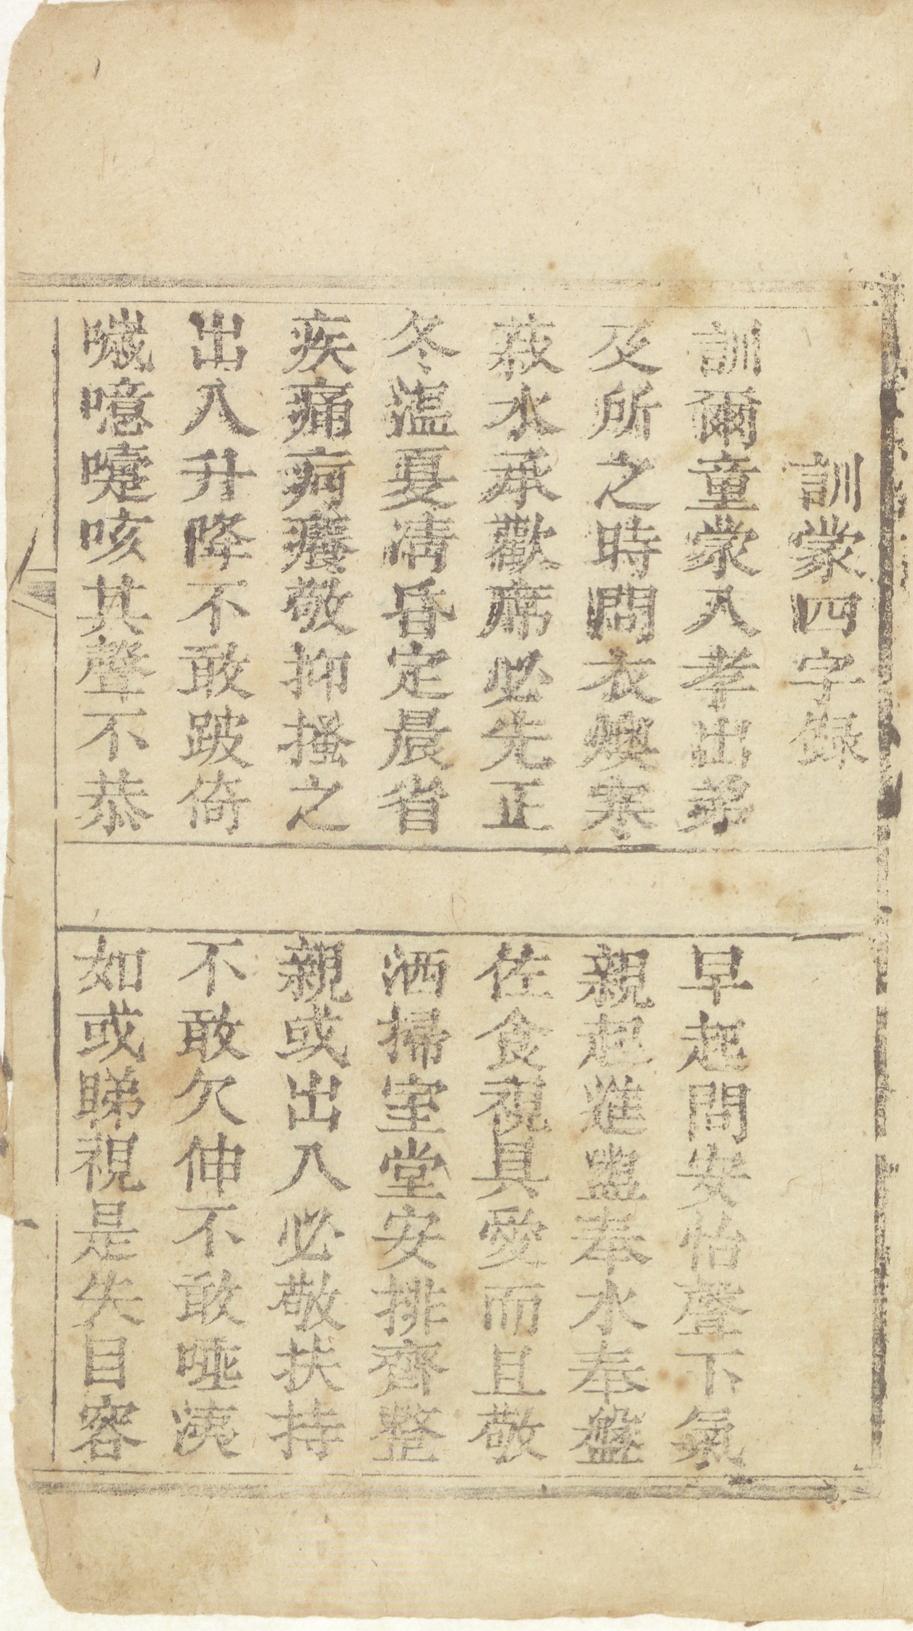 訓蒙四字録
訓爾童蒙入孝出弟
早起問安怡聲下氣
及所之時問衣燠寒
親起進盥奉水奉盤
菽水承歡席必先正
佐食視具愛而且敬
冬温夏凊昏定晨省
洒掃室堂安排齊整
疾痛疴癢敬抑搔之
親或出入必敬扶持
出入升降不敢跛倚
不敢欠伸不敢唾洟
噦噫嚏咳其聲不恭
如或睇視是失目容